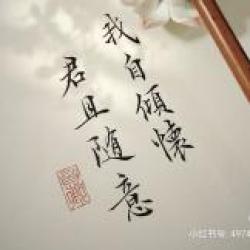 我自傾懷
君且随意
小红书号: 4974